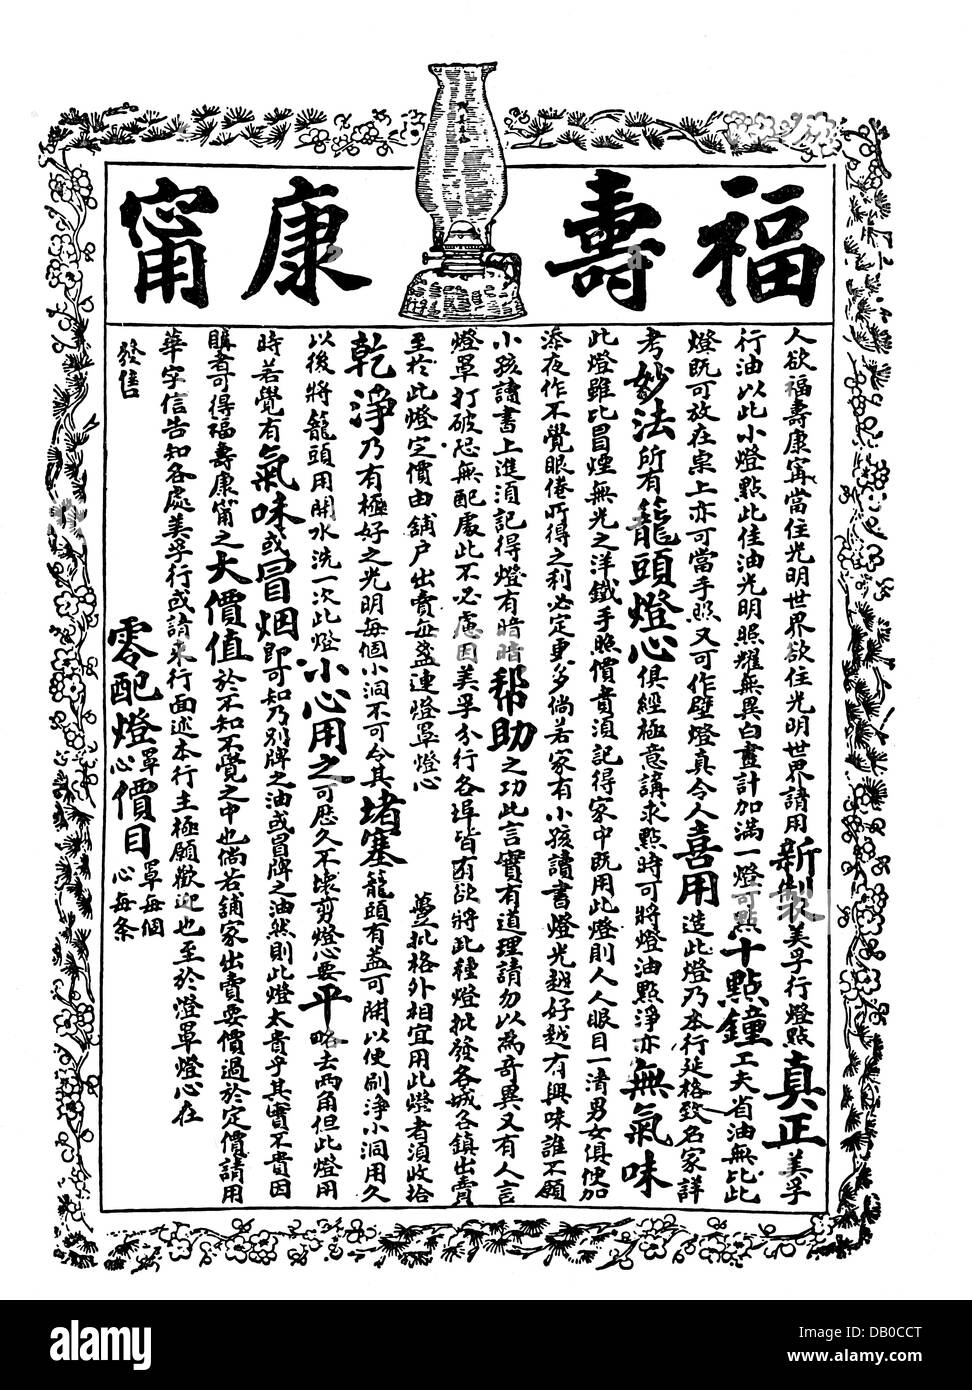 福壽康甯
人欲福壽康甯當住光明世界欲住光明世界請用新製美孚行燈點真正美孚
行油以此小燈點此佳油光明照耀無異白晝計加滿一燈可點十點鐘工夫省油無比此
燈既可放在桌上亦可當手照又可作壁燈真令人喜用造此燈乃本行延格致名家詳
考妙法所有籠頭燈心俱經極意講求點時可將燈油點淨亦無氣味
此燈雖比冒煙無光之洋鐵手照價貴須記得家中既用此燈則人人眼目一清男女俱便加
添夜作不覺眼倦所得之利必定更多倘若家有小孩讀書燈光越好越有興味誰不願
小孩讀書上進須記得燈有暗暗幫助之功此言實有道理請勿以為奇異又有人言
燈罩打破恐無配處此不必慮因美孚分行各埠皆有欲將此種燈批發各城各鎮出賣
至於此燈定價由舖户出賣每盞連燈罩燈心 躉批格外相宜用此燈者須收拾
乾淨乃有極好之光明每個小洞不可令其堵塞籠頭有蓋可開以便刷淨小洞用久
以後將籠頭用開水洗一次此燈小心用之可歷久不壞剪燈心要平略去兩角但此燈用
時若覺有氣味或冒烟即可知乃別牌之油或冒牌之油然則此燈太貴乎其實不貴因
購者可得福壽康甯之大價值於不知不覺之中也倘若舖家出賣要價過於定價請用
華字信告知各處美孚行或請來行面述本行主極願歡迎也至於燈罩燈心在
發售 零配燈罩心價目 罩每個 心每条
alamy
Image ID: DB0CCT
www.alamy.com